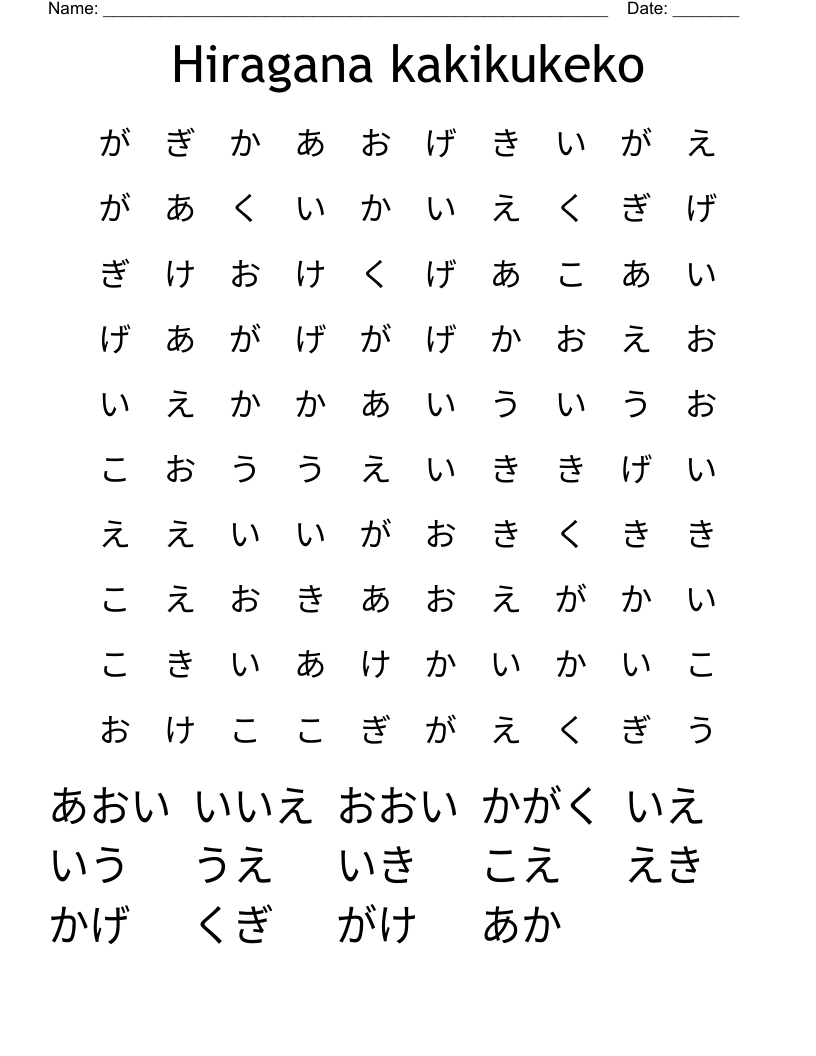 Name: _____________________________________________________ Date: _______
Hiragana kakikukeko
が ぎ か あ お げ き い が え
が あ く い か い え く ぎ げ
ぎ け お け く げ あ こ あ い
げ あ が げ が げ か お え お
い え か か あ い う い う お
こ お う う え い き き げ い
え え い い が お き く き き
こ え お き あ お え が か い
こ き い あ け か い か い こ
お け こ こ ぎ が え く ぎ う
あおい いいえ おおい かがく いえ
いう うえ いき こえ えき
かげ くぎ がけ あか